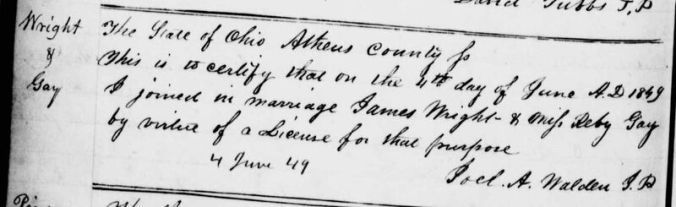 David Tubbs J.P
Wright
&
Gay
The State of Ohio Athens County ss
This is to certify that on the 4th day of June A.D 1849
I joined in marriage James Wright & Miss Reby Gay
by virtue of a License for that purpose
4 June 49
Joel. A. Walden J.P